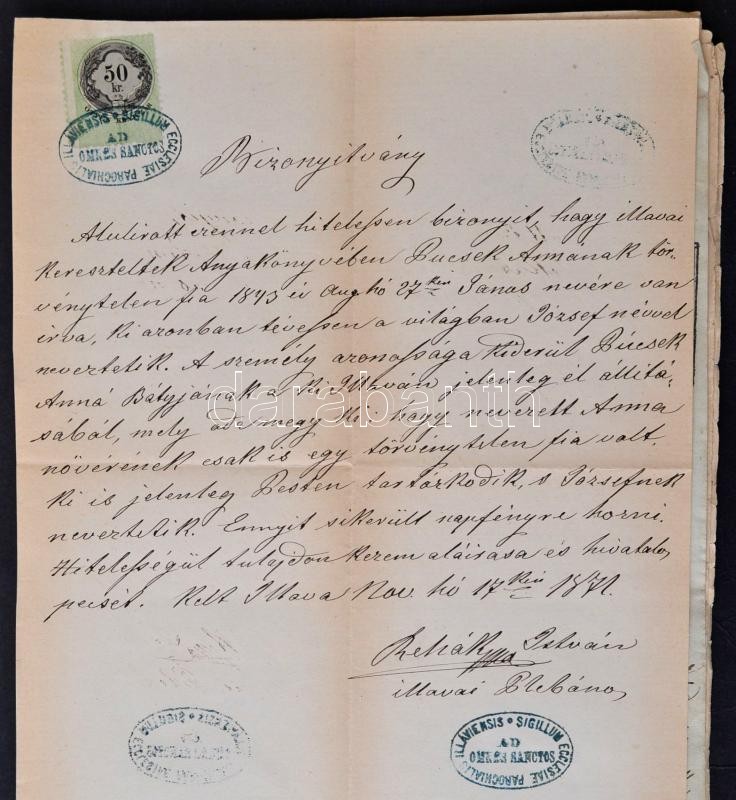 50
kr.
SIGILLUM ECCLESIAE PAROCHIALIS ILLAVIENSIS
AD
OMNES SANCTOS
Bizonyítvány
Alulirott ezennel hitelessen bizonyit, hogy illavai
kereszteltek Anyakönyvében Pucsek Annának tör-
vénytelen fia 1843 év Aug hó 27 kén János nevére van
irva, ki azonban tévessen a világban József névvel
neveztetik. A személy azonossága kiderül Púcsek
Anná Bátyjának a ki Illaván jelenleg él állitá-
sából, mely oda megy ki, hogy nevezett Anna
növérének csak is egy törvénytelen fia volt.
ki is jelenleg Pesten tartózkodik, s Józsefnek
neveztetik. Ennyit sikerült napfényre hozni.
Hitelességül tulajdon kezem aláirasa és hivatalos
pecsét. Kelt Illava Nov. hó 17 kén 1871.
Rehák István
illavai Plebános
SIGILLUM ECCLESIAE PAROCHIALIS ILLAVIENSIS
AD
OMNES SANCTOS
darabanth